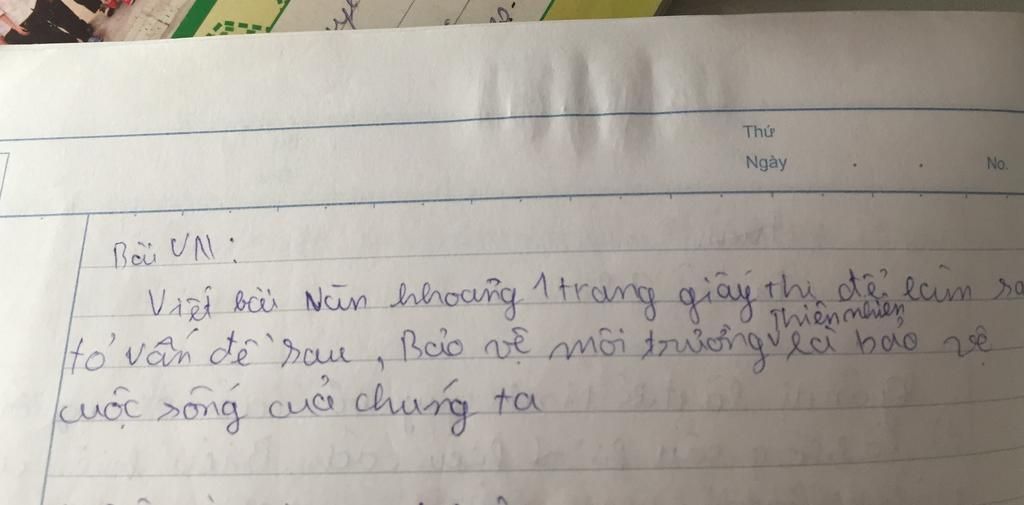 Thứ
Ngày . . No.
Bài VN:
Viết bài văn khoảng 1 trang giấy thi để làm sá
Thiên nhiên
tỏ vấn đề sau, Bảo vệ môi trường là bảo vệ
cuộc sống của chúng ta